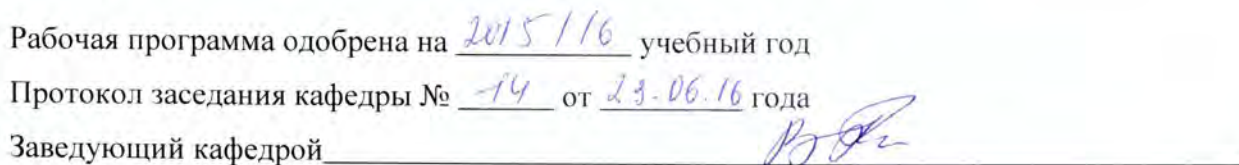 Рабочая программа одобрена на 2015/16 учебный год
Протокол заседания кафедры № 14 от 23.06.16 года
Заведующий кафедрой